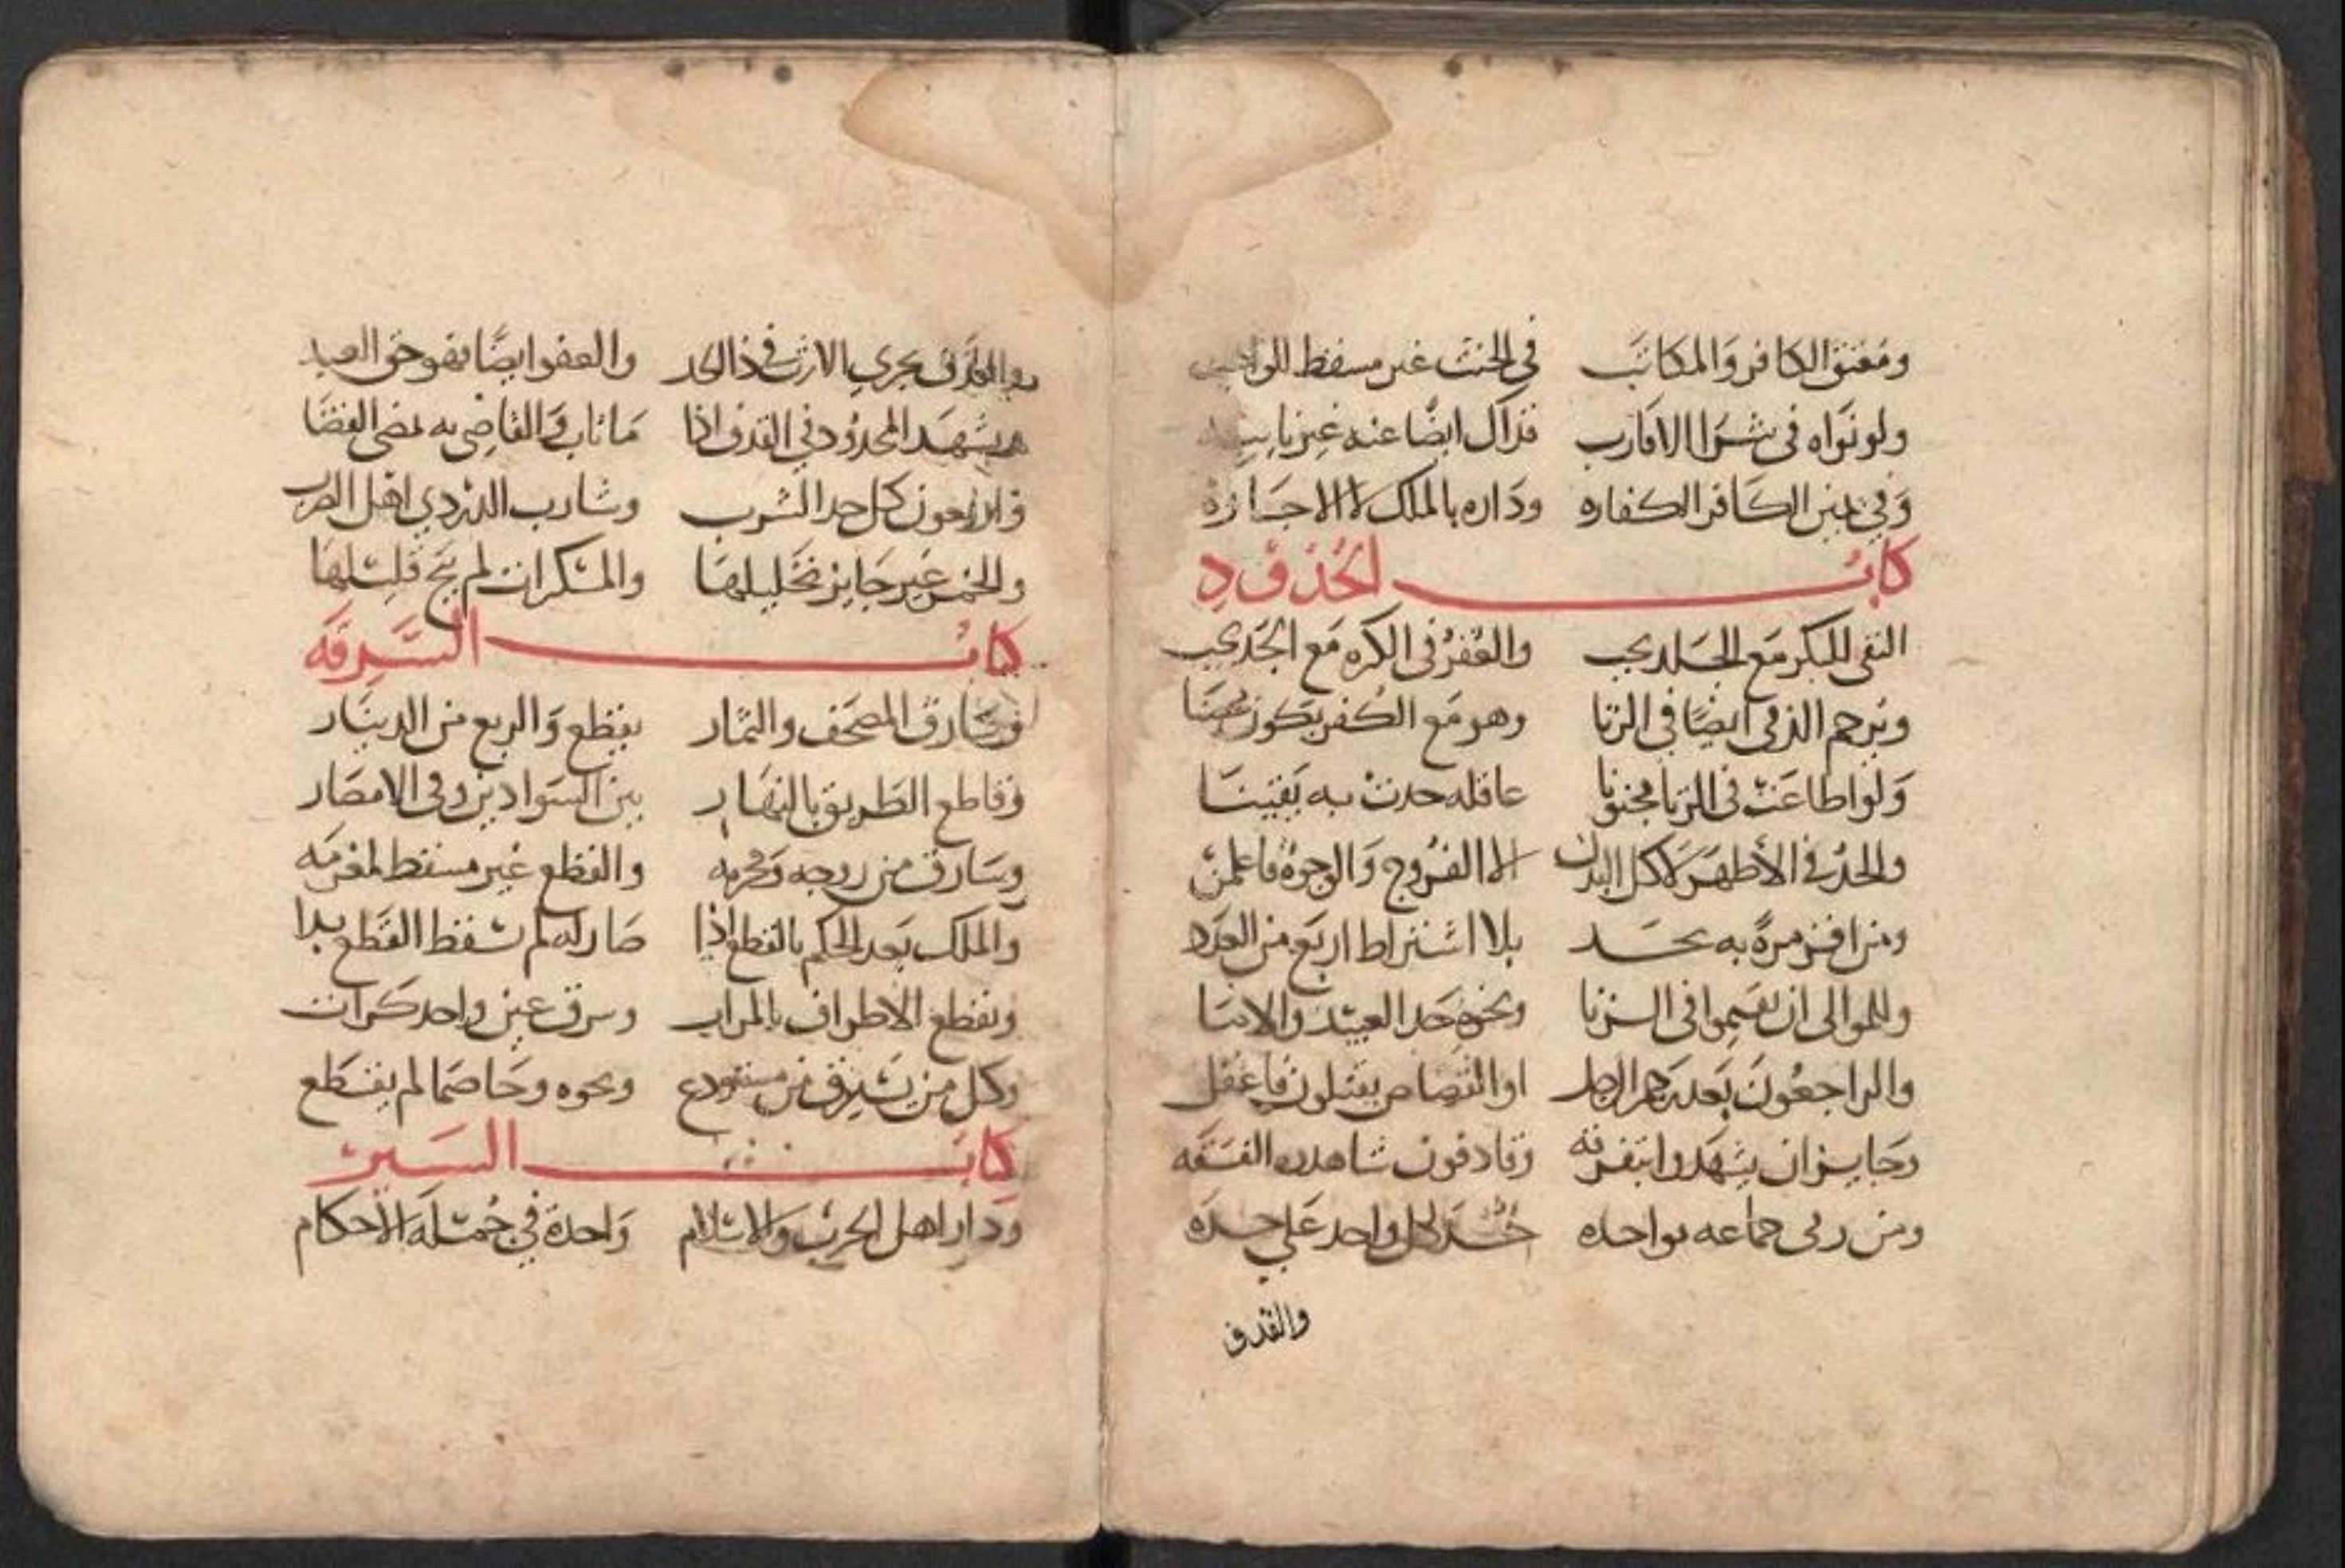 ومعتق الكافر والمكاتب في الحنث غير مسقط للواجب
ولو نواه في شرا الاقارب فذاك ايضا عنه غير نايب
وفي يمين الكافر الكفاره وداره بالملك لا الاجازة
كتاب الحدود
النفى للبكر مع الجلد يجب والعقر في الكره مع الحد يجب
ويرجم الذمى ايضا في الزنا وهو مع الكفر يكون محصنا
ولو اطاعت في الزنا مجنونا عاقله حدت به يقينا
والحد في الأظهر لا كل البدن لا الفروج والوجوه فاعلمن
ومن اقر مرة به يحد بلا اشتراط اربع من العدد
وللموالى ان يقيموا في الزنا ونحوه حد العبيد والاما
والراجعون بعد رجم الرجل او القصاص يقتلون فاعقل
وجايز ان يشهدوا بتفرقه وقاذفون شاهدون الفسقه
ومن رمى جماعه بواحده حد لكل واحد على حده
والقذف
والقذف يجري الارث في ذا الحد والعفو ايضا فهو حق العبد
ويشهد المحدود في القذف اذا ما تاب والقاضي به مضى القضا
والاربعون كل حد الشرب وشارب الدردي اهل الضرب
والخمر غير جايز تخليلها والمسكرات لم يبح قليلها
كتاب السرقه
وسارق المصحف والثمار يقطع والربع من الدينار
وقاطع الطريق بالنهار بين السوادين وفى الامصار
وسارق من زوجه ومحرمه والقطع غير مسقط لمغرمه
والملك بعد الحكم بالقطع اذا صار له لم يسقط القطع بدا
وتقطع الاطراف بالمرات وسرق عين واحد كرات
وكل من يسرق من مستودع ونحوه وخاصما لم يقطع
كتاب السير
ودار اهل الحرب والاسلام واحدة في جملة الأحكام